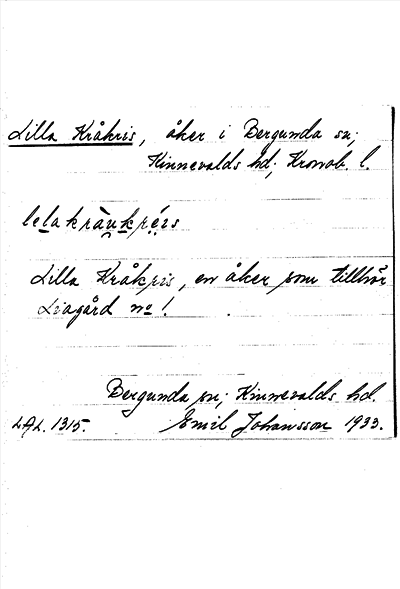 Lilla Kråkris, åker i Bergunda sn;
Kinnevalds hd; Kronob. l.
lelakràukréis
Lilla Kråkris, en åker som tillhör
Liagård no 1.
Bergunda sn; Kinnevalds hd.
LAL. 1315. Emil Johansson 1933.